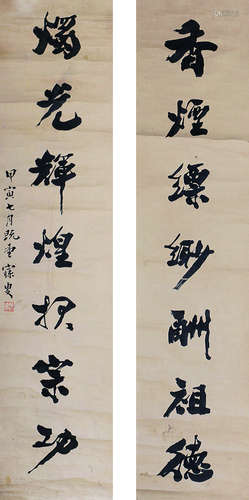 香煙縹緲酬祖德
燭光輝煌报宗功
甲寅七月既望